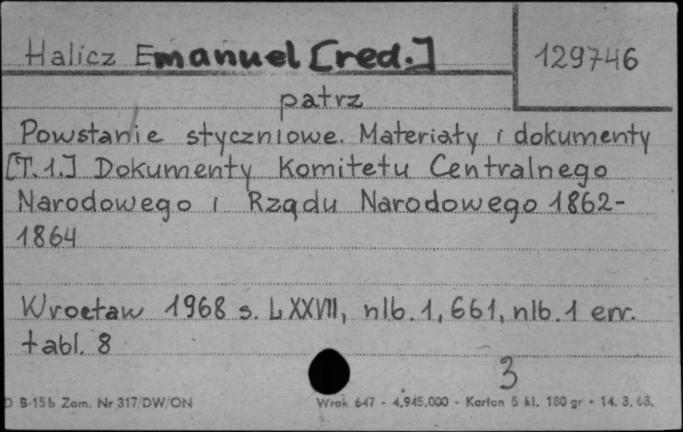 Halicz Emanuel [red.]
129746
patrz
Powstanie styczniowe. Materiały i dokumenty
[T.1.] Dokumenty Komitetu Centralnego
Narodowego i Rządu Narodowego 1862-
1864
Wrocław 1968 s. LXXVII, nlb. 1, 661, nlb. 1 err.
tabl. 8
3
D B-15b Zam. Nr 317/DW/ON
Wrak 647 - 4.945.000 - Karton 5 kl. 180 gr - 14. 3. 63.